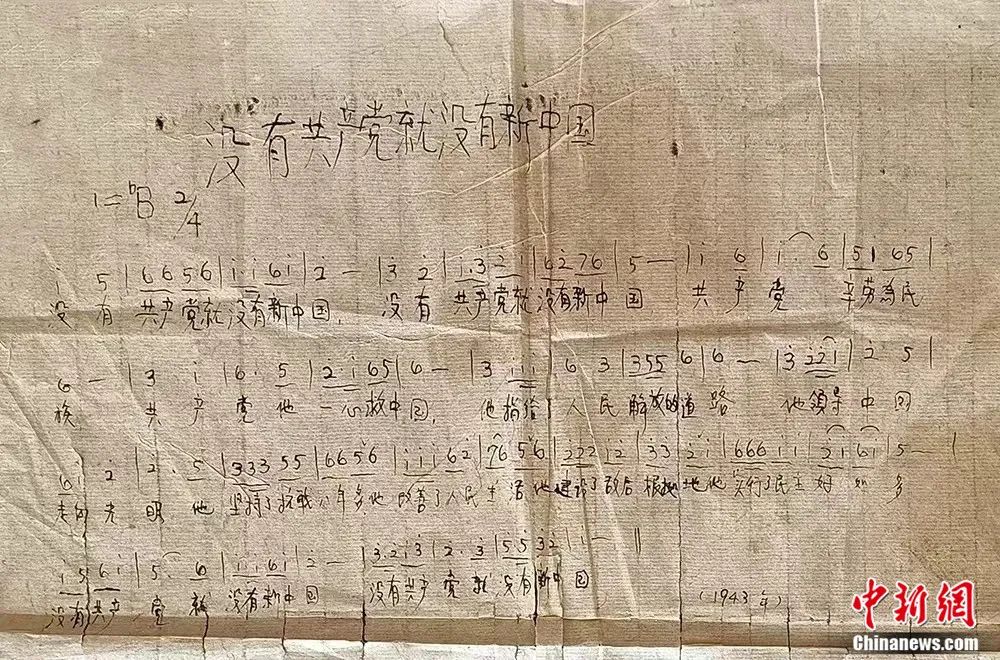 没有共产党就没有新中国
1=ᵇB 2/4
i 5 | 6 6 5 6 | i i 6 i | 2 — | 3 2 | i·3 2 i | 6 2 7 6 | 5 — | i 6 | i· 6 | 5 1 6 5 |
没有共产党就没有新中国, 没有共产党就没有新中国 共产党 辛劳为民
6 — | 3 i | 6· 5 | 2·i 6 5 | 6 — | 3 i i | 6 3 | 3 5 5 6 | 6 — | 3 2 2 i | 2· 5 |
族 共产党他一心救中国, 他指给了人民解放的道路 他领导中国
6 i 2 | 2· 5 | 3 3 3 5 5 | 6 6 5 6 | i i i 6 2 | 7 6 5 6 | 2 2 2 1 2 | 3 3 2 i | 6 6 6 i i | 2 i 6 i | 5 — |
走向光明 他坚持了抗战八年多他改善了人民生活他建设了敌后根据地他实行了民主好如多
i 5 6 i | 5· 6 | i i 6 i | 2 — | 3·2 i 3 | 2· 3 | 5 5 3 2 | i — ‖
没有共产党就没有新中国 没有共产党就没有新中国
(1943年)
中新网
Chinanews.com